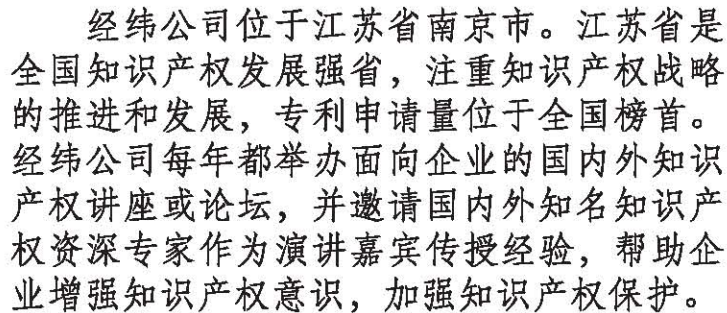 经纬公司位于江苏省南京市。江苏省是
全国知识产权发展强省，注重知识产权战略
的推进和发展，专利申请量位于全国榜首。
经纬公司每年都举办面向企业的国内外知识
产权讲座或论坛，并邀请国内外知名知识产
权资深专家作为演讲嘉宾传授经验，帮助企
业增强知识产权意识，加强知识产权保护。